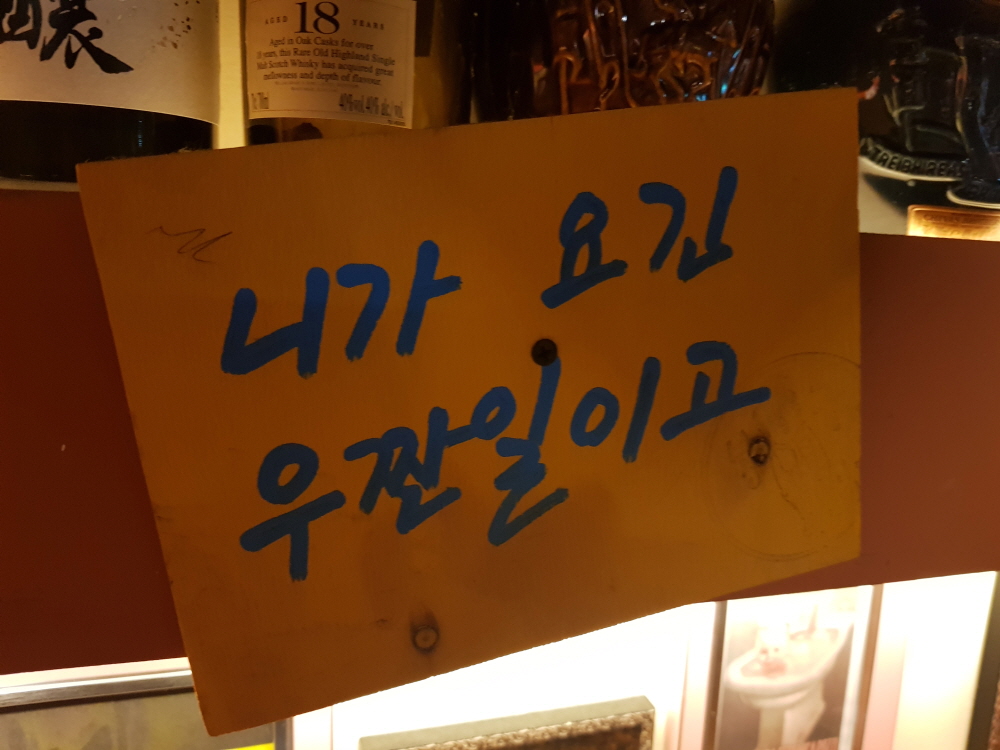 釀
AGED 18 YEARS
Aged in Oak Casks for over
18 years, this Rare Old Highland Single
Malt Scotch Whisky has acquired great
mellowness and depth of flavour
40%vol. 40% alc./vol.
니가 요긴
우짠일이고